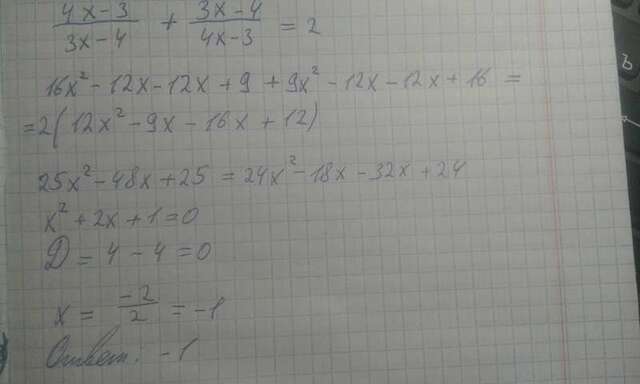 (4x-3)/(3x-4) + (3x-4)/(4x-3) = 2
16x² - 12x - 12x + 9 + 9x² - 12x - 12x + 16 =
= 2(12x² - 9x - 16x + 12)
25x² - 48x + 25 = 24x² - 18x - 32x + 24
x² + 2x + 1 = 0
D = 4 - 4 = 0
x = -2/2 = -1
Ответ: -1
Ъ